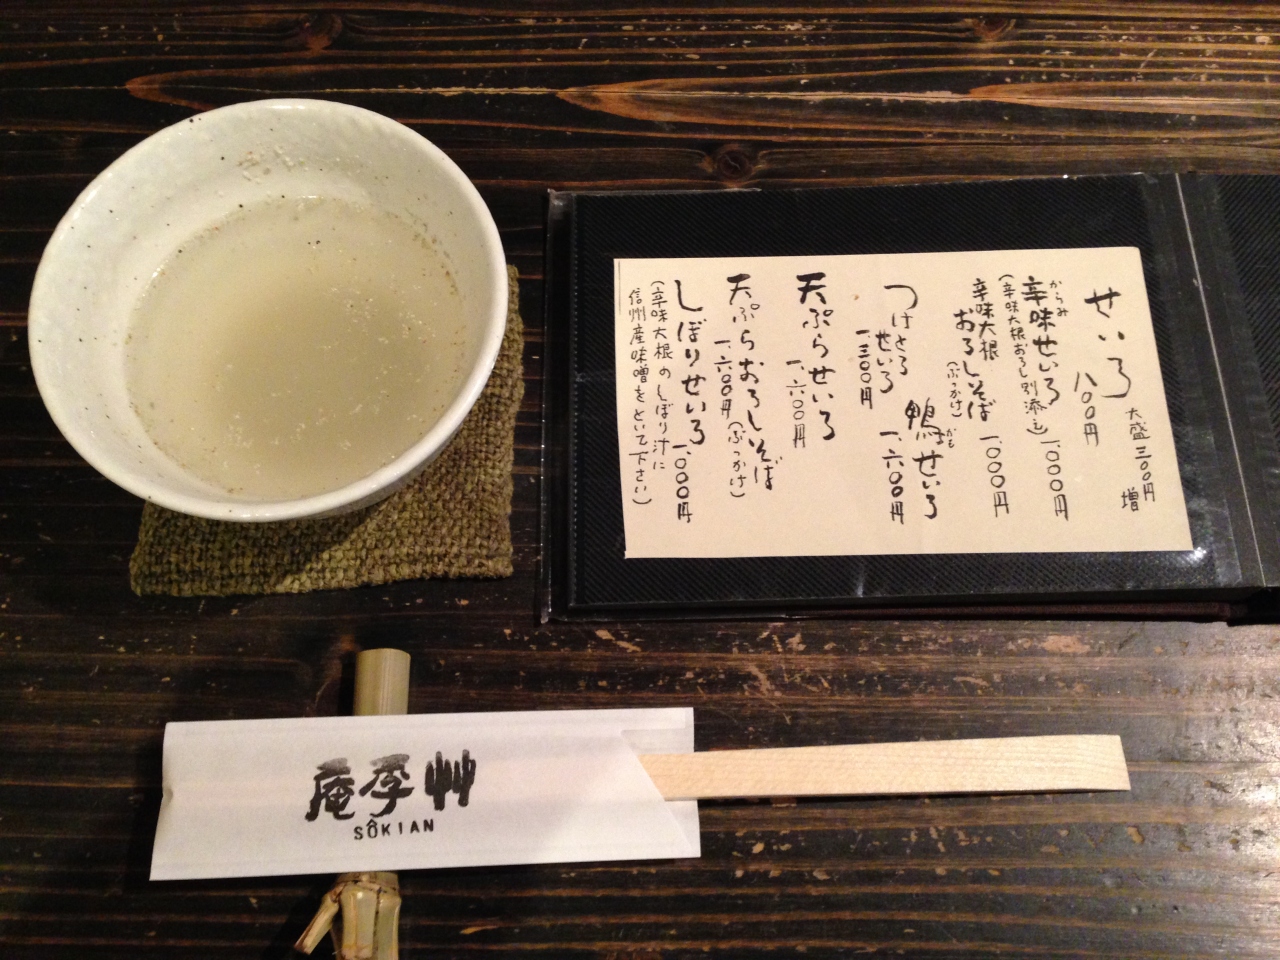 せいろ
八〇〇円
大盛三〇〇円
増
からみ
辛味せいろ
一、〇〇〇円
(辛味大根おろし別添え)
辛味大根
おろしそば
(ぶっかけ)
一、〇〇〇円
つけとろ
せいろ
一、三〇〇円
かも
鴨せいろ
一、六〇〇円
天ぷらせいろ
一、六〇〇円
天ぷらおろしそば
一、六〇〇円(ぶっかけ)
しぼりせいろ
一、〇〇〇円
(辛味大根のしぼり汁に
信州産味噌をといて下さい)
庵季艸
SÔKIAN